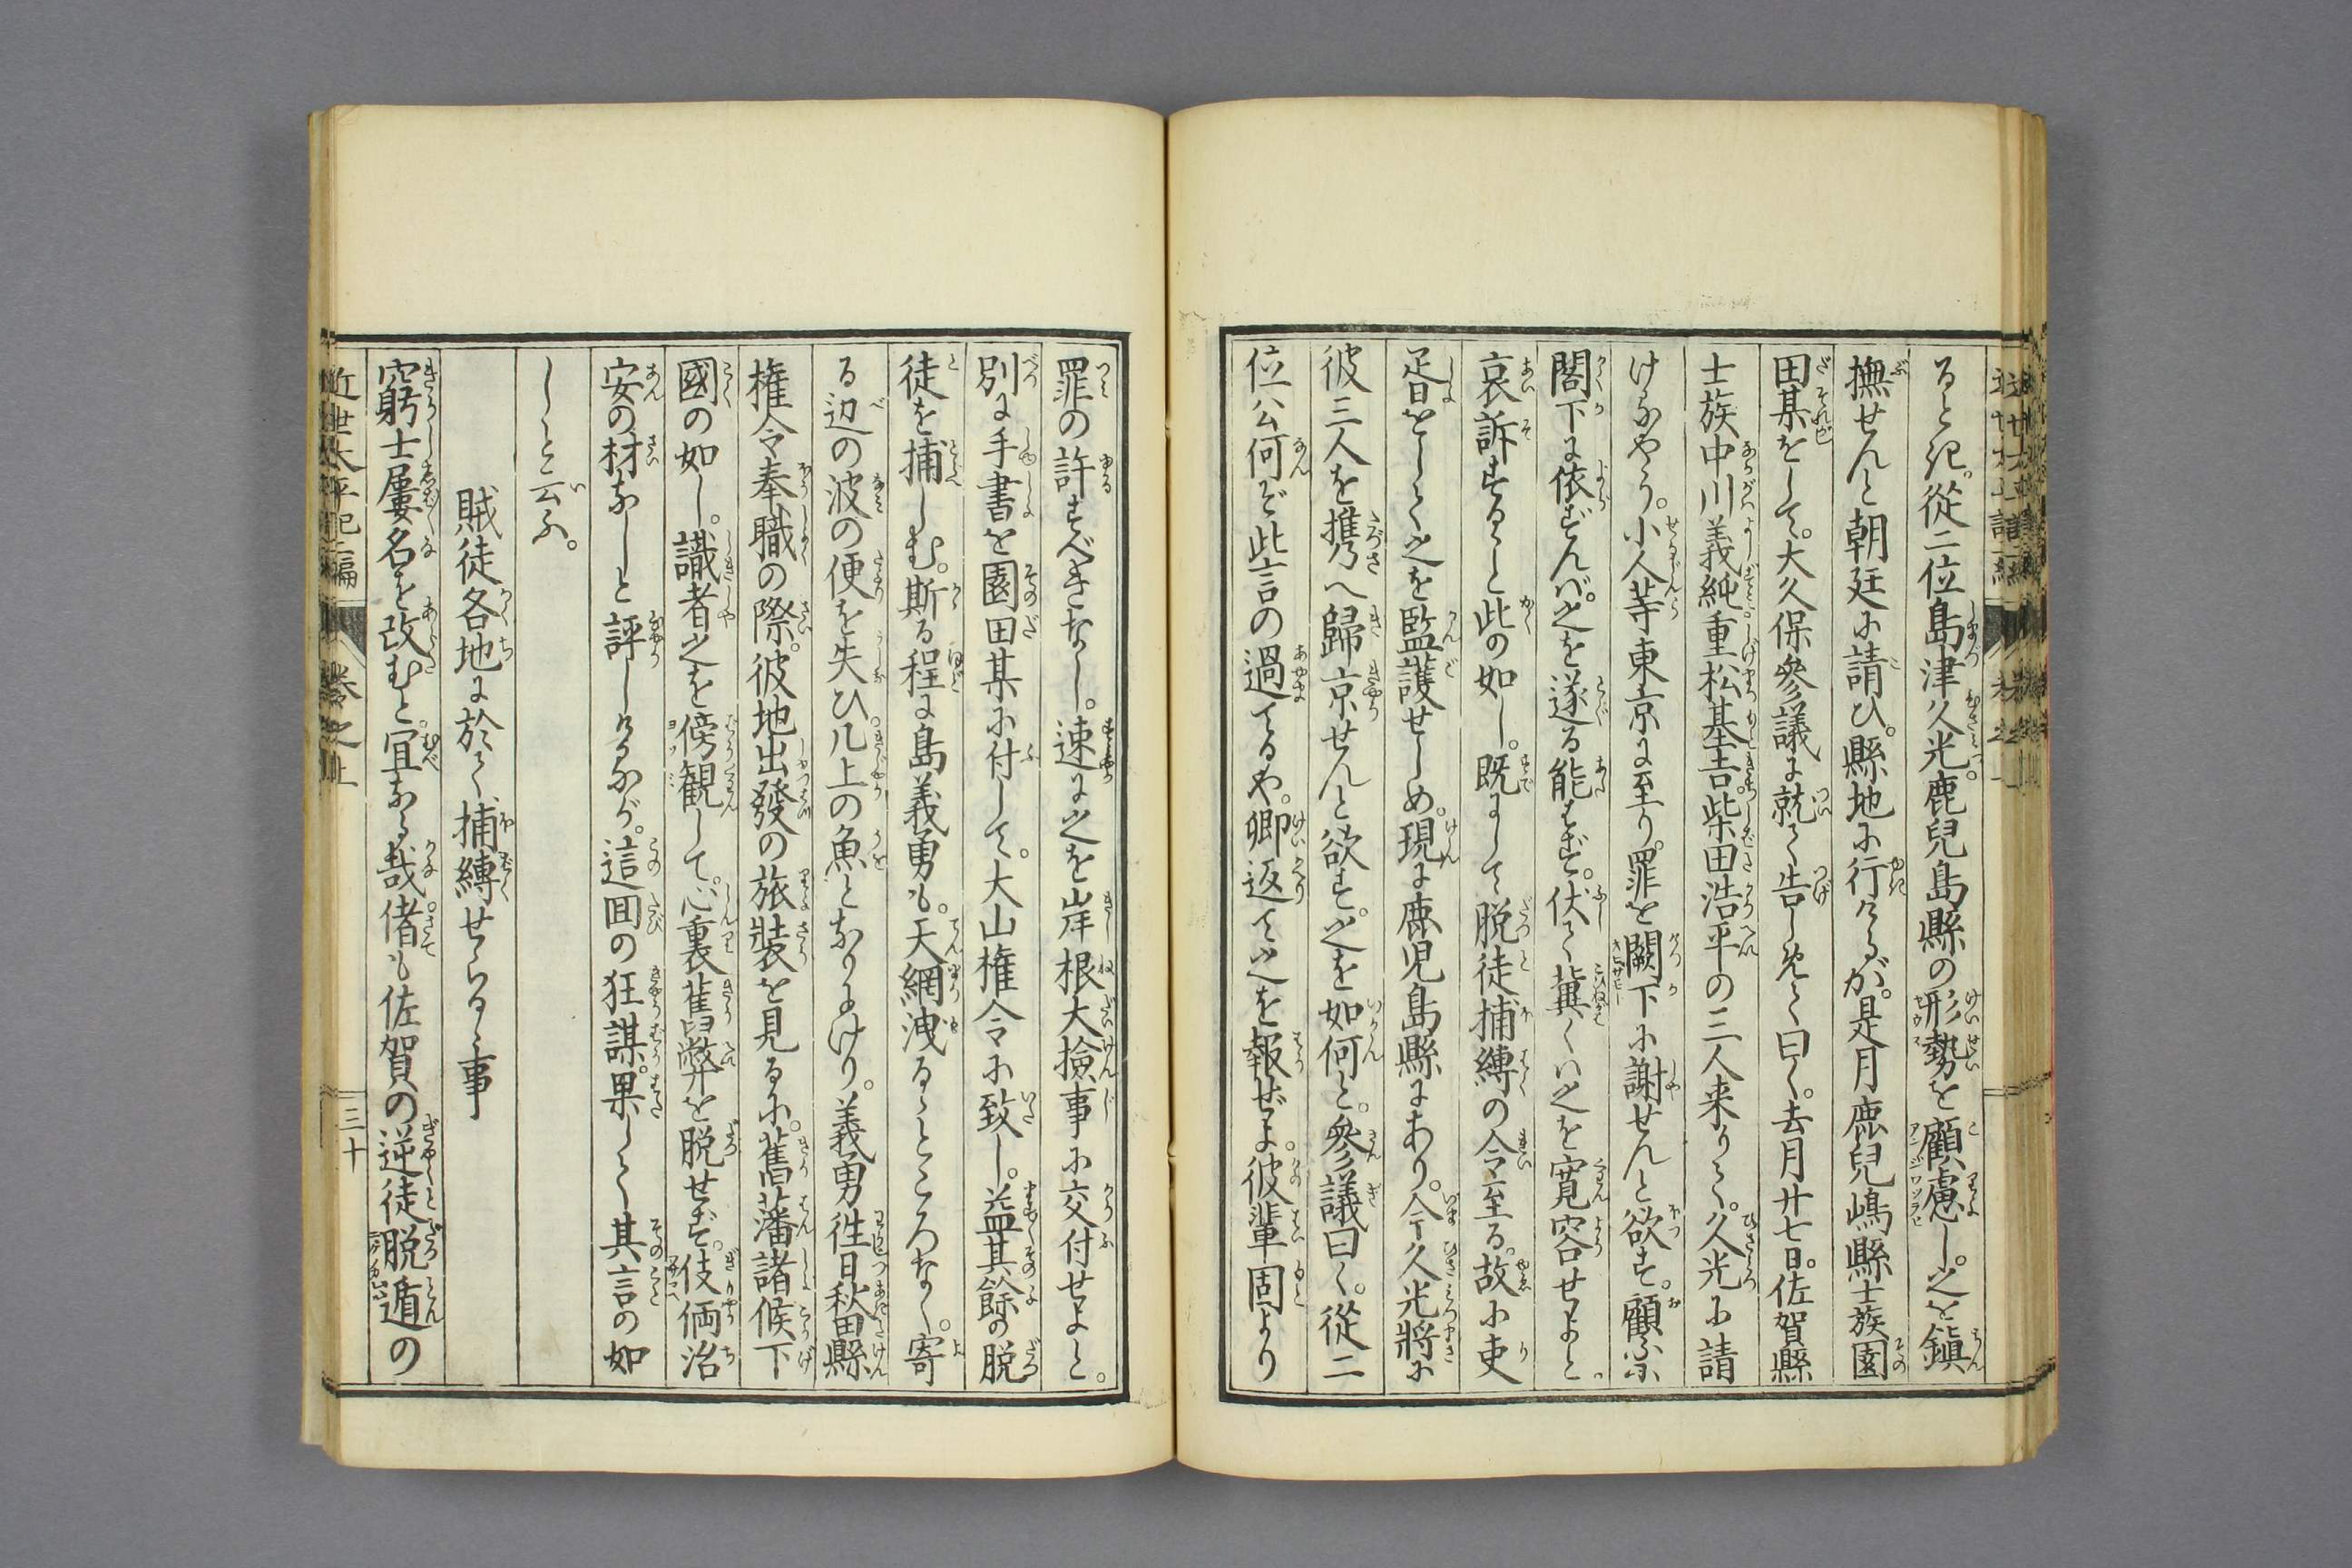 ると紀。從二位島津久光鹿兒島縣の形勢を顧慮し。之を鎭
撫せんと朝廷に請ひ。縣地に行けるが。是月鹿兒嶋縣士族園
田某をして。大久保參議に就て告しめて曰く。去月廿七日。佐賀縣
士族中川義純重松基吉。柴田浩平の三人来りて。久光に請
けるやう。小人等東京に至り。罪を闕下に謝せんと欲す。顧ふに
閣下に依ずんば。之を遂る能はず。伏て冀くハ之を寛容せよと。
哀訴すること此の如し。既にして脱徒捕縛の令至る。故に吏
胥をして之を監護せしめ。現に鹿児島縣にあり。今久光將に
彼三人を携へ歸京せんと欲す。之を如何と。參議曰く。從二
位公何ぞ此言の過てるや。卿返て之を報ぜよ。彼輩固より
罪の許すべきなし。速に之を岸根大撿事に交付せよと。
別に手書を園田某に付して。大山権令に致し。益其餘の脱
徒を捕しむ。斯る程に島義勇も。天網洩るゝところなく。寄
る辺の波の便を失ひ。几上の魚となりにけり。義勇徃日秋田縣
権令奉職の際。彼地出發の旅装を見るに。舊藩諸候下
國の如し。識者之を傍観して。心裏舊弊を脱せず。伎倆治
安の材なしと評しけるが。這回の狂謀。果して其言の如
しと云ふ。
賊徒各地に於て捕縛せらるゝ事
窮士屢名を改むと。宜なる哉。偖も佐賀の逆徒脱遁の
近世太平記二編
卷之上
三十